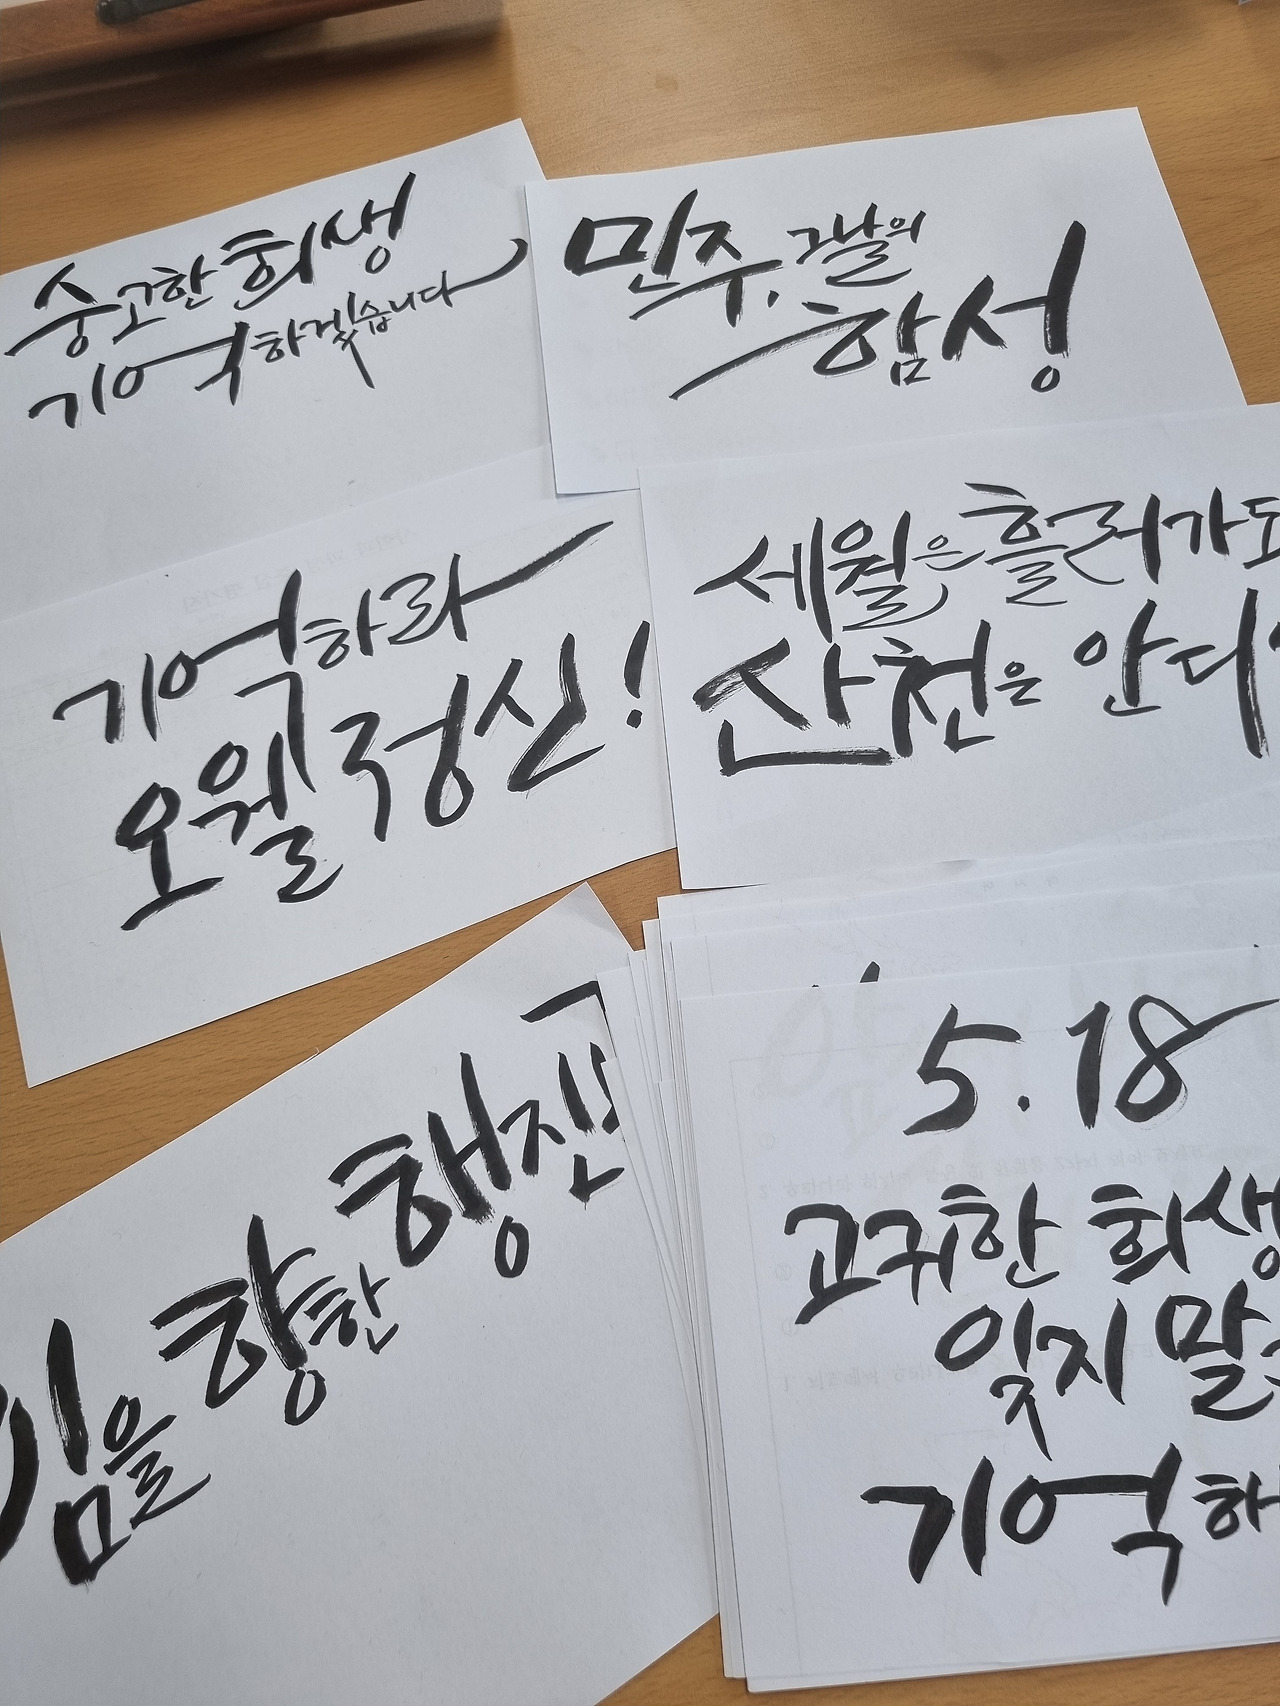 숭고한 희생
기억하겠습니다
민주, 그날의
함성
기억하라
오월 정신!
세월은 흘러가도
산천은 안다
임을 향한 행진
5.18
고귀한 희생
잊지 말고
기억하